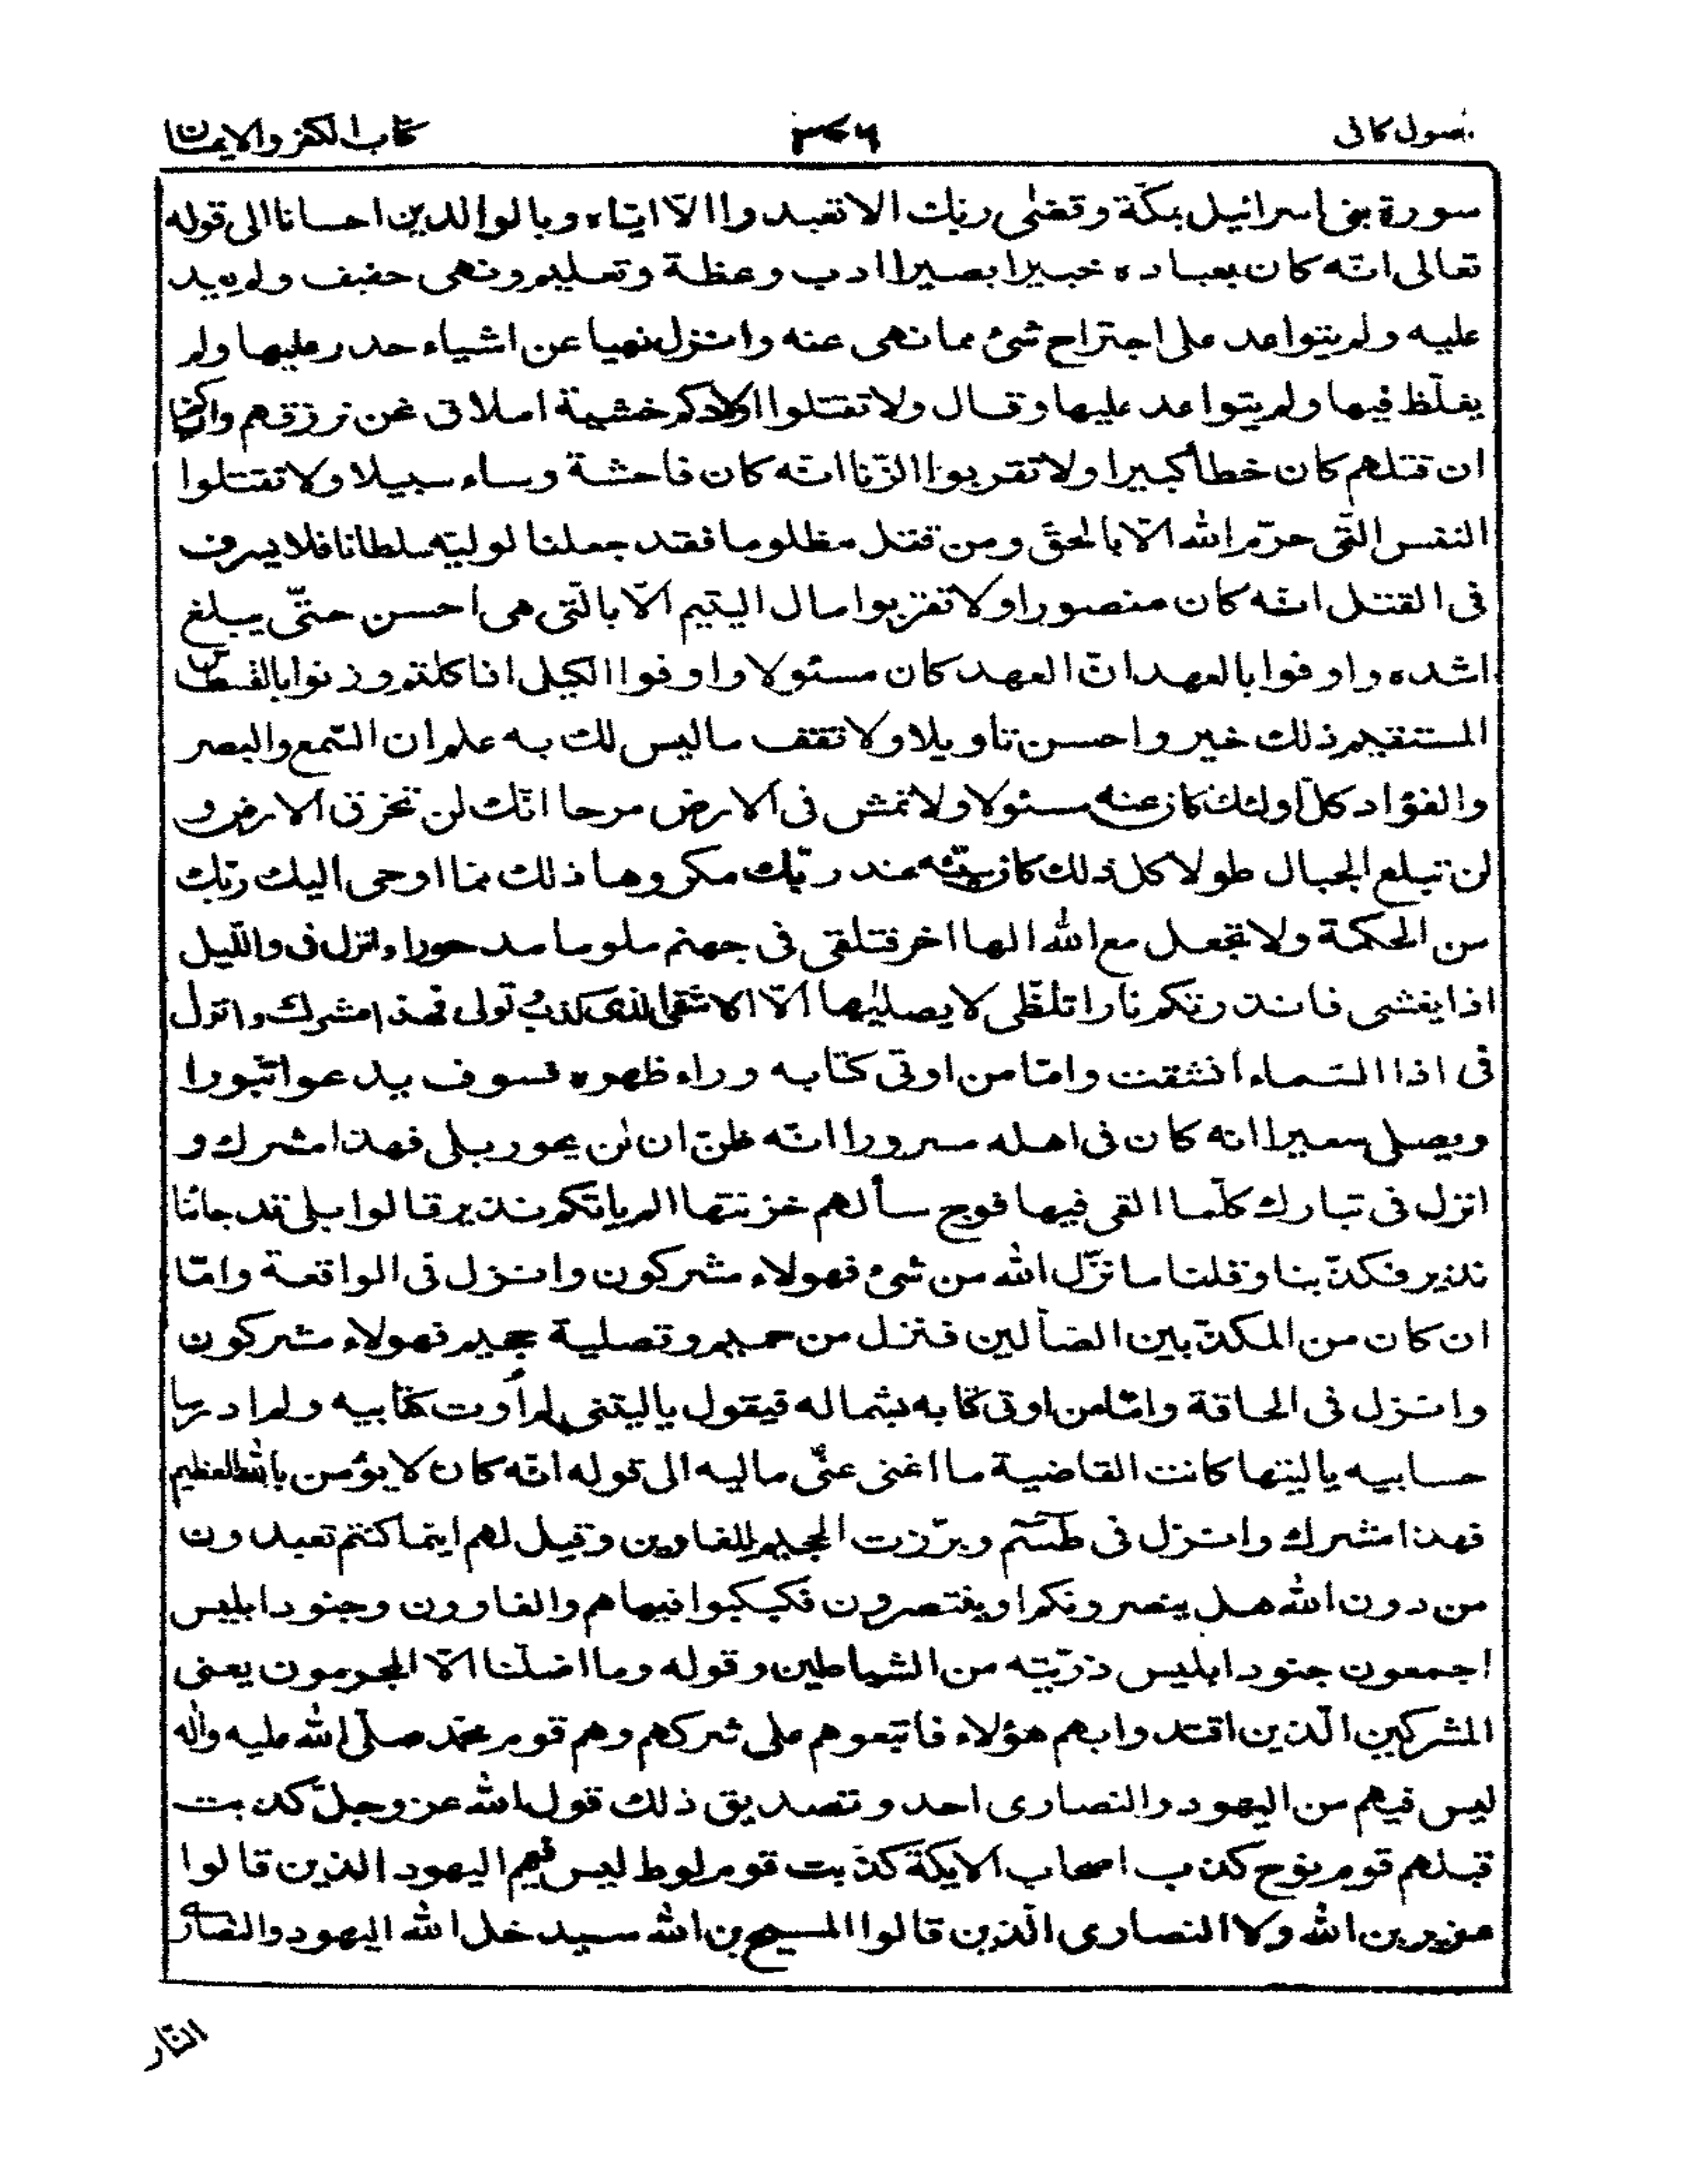 اصول كافى ٣٧٦ كتاب الكفر والايمان
سورة بنى اسرائيل بمكّة وقضٰى ربّك الا تعبدوا الّا ايّاه وبالوالدين احسانا الى قوله
تعالى انّه كان بعباده خبيرا بصيرا ادب وعظة وتعليم ونهى خفيف ولم يعد
عليه ولم يتواعد على اجتراح شئ مما نهى عنه وانزل نهيا عن اشياء حذر عليها ولم
يغلّظ فيها ولم يتواعد عليها وقال ولا تقتلوا اولادكم خشية املاق نحن نرزقهم واياكم
ان قتلهم كان خطأ كبيرا ولا تقربوا الزّنا انّه كان فاحشة وساء سبيلا ولا تقتلوا
النفس الّتى حرّم الله الّا بالحقّ ومن قتل مظلوما فقد جعلنا لوليّه سلطانا فلا يسرف
فى القتل انّه كان منصورا ولا تقربوا مال اليتيم الّا بالّتى هى احسن حتّى يبلغ
اشده واوفوا بالعهد انّ العهد كان مسئولا واوفوا الكيل اذا كلتم وزنوا بالقسطاس
المستقيم ذلك خير واحسن تاويلا ولا تقف ما ليس لك به علم ان السّمع والبصر
والفؤاد كلّ اولئك كان عنه مسئولا ولا تمش فى الارض مرحا انّك لن تخرق الارض و
لن تبلغ الجبال طولا كل ذلك كان سيّئه عند ربّك مكروها ذلك ممّا اوحى اليك ربّك
من الحكمة ولا تجعل مع الله الها اخر فتلقى فى جهنم ملوما مدحورا وانزل فى والّليل
اذا يغشى فانذرتكم نارا تلظّى لا يصليٰها الّا الاشقى الذى كذب وتولى فهذا مشرك وانزل
فى اذا السّماء انشقت وامّا من اوتى كتابه وراء ظهره فسوف يدعوا ثبورا
ويصلى سعيرا انه كان فى اهله مسرورا انّه ظنّ ان لن يحور بلى فهذا مشرك و
انزل فى تبارك كلّما القى فيها فوج سألهم خزنتها الم ياتكم نذير قالوا بلى قد جائنا
نذير فكذّبنا وقلنا ما نزّل الله من شئ فهولاء مشركون وانزل فى الواقعة وامّا
ان كان من المكذّبين الضالّين فنزل من حميم وتصلية جحيم فهولاء مشركون
وانزل فى الحاقة وامّا من اوتى كتابه بشماله فيقول ياليتنى لم أوت كتابيه ولم ادر ما
حسابيه ياليتها كانت القاضية ما اغنى عنّى ماليه الى قوله انّه كان لا يؤمن بالله العظيم
فهذا مشرك وانزل فى طسٓم وبرّزت الجحيم للغاوين وقيل لهم اينما كنتم تعبدون
من دون الله هل ينصرونكم او ينتصرون فكبكبوا فيها هم والغاوون وجنود ابليس
اجمعون جنود ابليس ذرّيّته من الشياطين وقوله وما اضلّنا الّا المجرمون يعنى
المشركين الّذين اقتدوا بهم هؤلاء فاتبعوهم على شركهم وهم قوم محمّد صلّى الله عليه واٰله
ليس فيهم من اليهود والنصارى احد وتصديق ذلك قول الله عز وجلّ كذبت
قبلهم قوم نوح كذب اصحاب الايكة كذّبت قوم لوط ليس فيهم اليهود الذين قالوا
عزير بن الله ولا النصارى الّذين قالوا المسيح بن الله سيدخل الله اليهود والنصارى
النّار